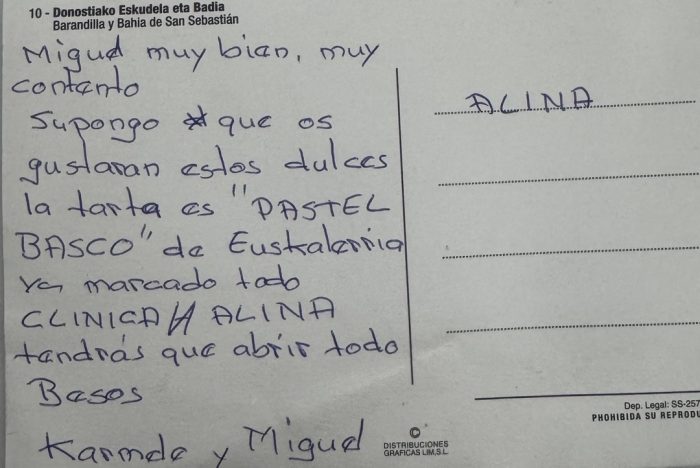 10 - Donostiako Eskudela eta Badia
Barandilla y Bahia de San Sebastián
Miguel muy bien, muy
contento
Supongo que os
gustaran estos dulces
la tarta es "PASTEL
BASCO" de Euskalerria
va marcado todo
CLINICA // ALINA
tendrás que abrir todo
Besos
Karmele y Miguel
ALINA
Dep. Legal: SS-257
PROHIBIDA SU REPRODU
©
DISTRIBUCIONES
GRAFICAS LIM,S.L.